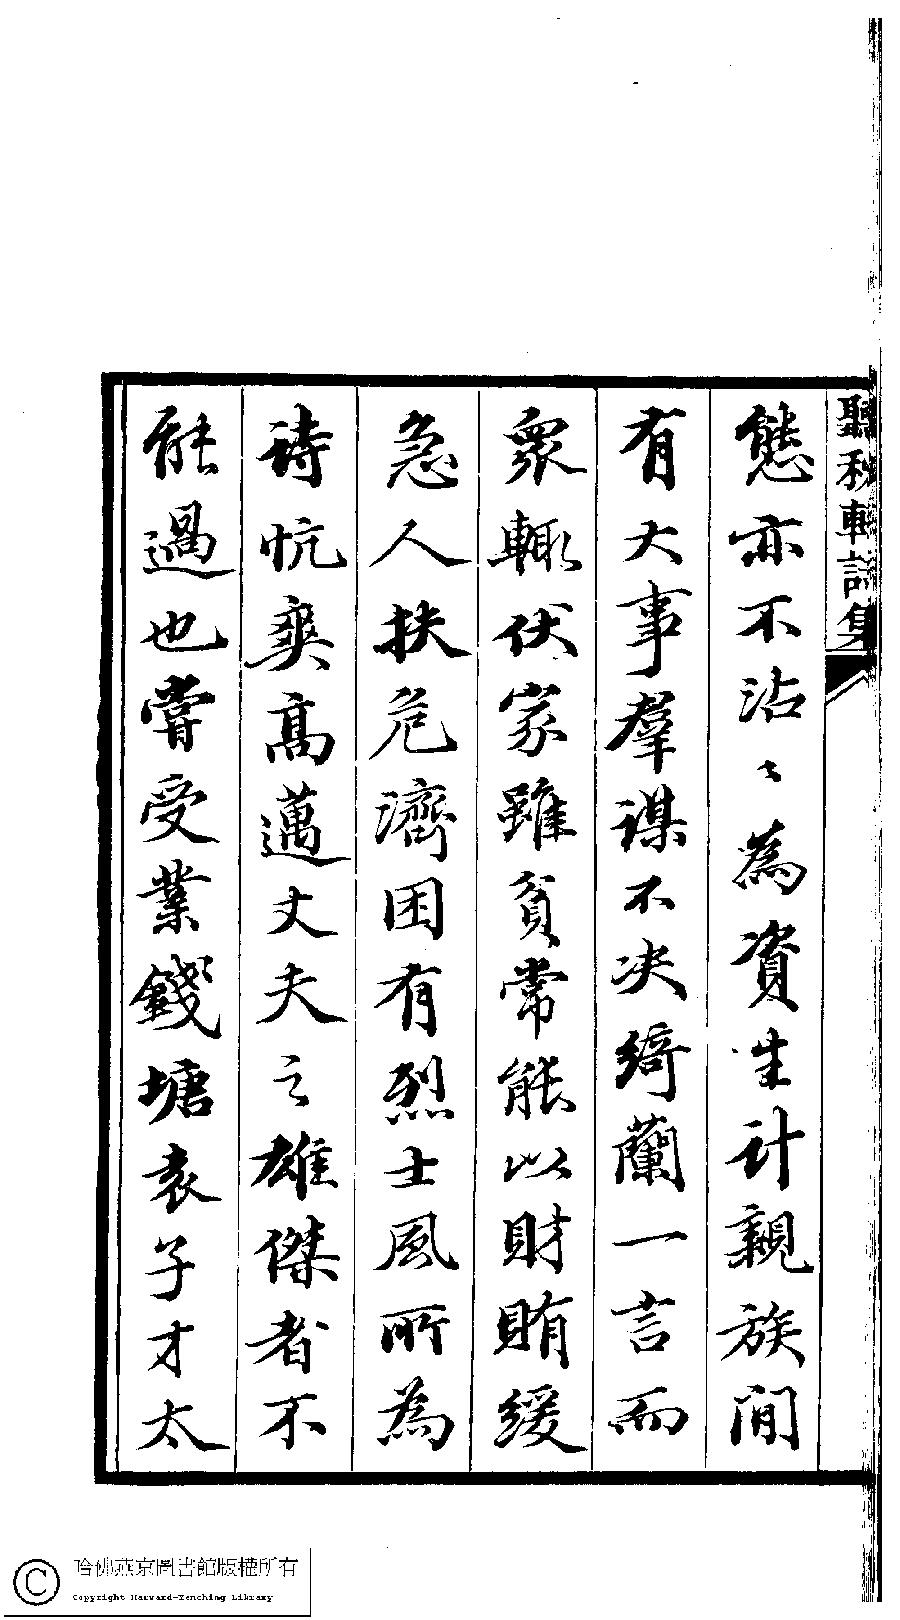 聽秋軒詩集
態亦不沾〻為資生計親族間
有大事羣謀不决綺蘭一言而
衆輙伏家雖貧常能以財賄緩
急人扶危濟困有烈士風所為
詩忼爽髙邁丈夫之雄傑者不
能過也嘗受業錢塘袁子才太
哈佛燕京圖書館版權所有
Copyright Harvard-Yenching Library